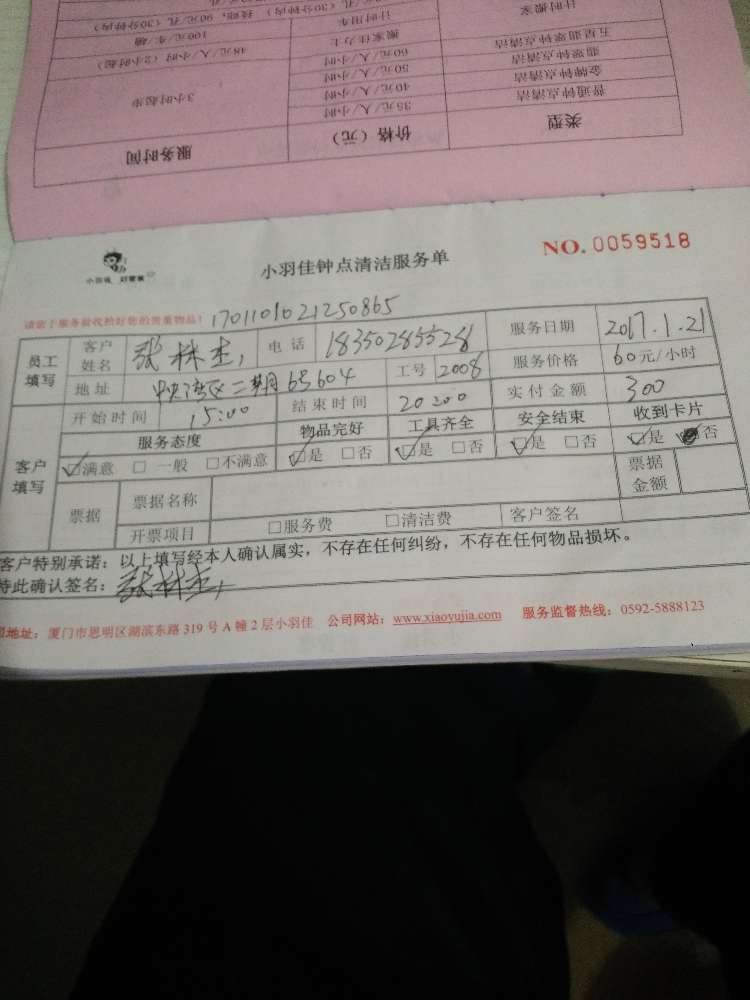 类型 价格（元） 服务时间
普通钟点清洁 35元/人/小时 3小时起步
金牌钟点清洁 40元/人/小时
翡翠钟点清洁 50元/人/小时
五星翡翠钟点清洁 60元/人/小时
搬家仕力士 48元/人/小时（2小时起）
计时搬家 计时用车 100元/车/趟
小羽佳钟点清洁服务单
NO. 0059518
小羽佳 好管家
请您于服务前收检好您的贵重物品！ 1701101021250865
员工填写 客户姓名 张林杰, 电话 18350285528 服务日期 2017.1.21
地址 中央湾区二期65604 工号 2008 服务价格 60元/小时
客户填写 开始时间 15:00 结束时间 20:00 实付金额 300
服务态度 物品完好 工具齐全 安全结束 收到卡片
☑满意 □一般 □不满意 ☑是 □否 ☑是 □否 ☑是 □否 ☑是 否
票据 票据名称 票据金额
开票项目 □服务费 □清洁费 客户签名
客户特别承诺：以上填写经本人确认属实，不存在任何纠纷，不存在任何物品损坏。
特此确认签名：张林杰,
地址：厦门市思明区湖滨东路319号A幢2层小羽佳 公司网站：www.xiaoyujia.com 服务监督热线：0592-5888123